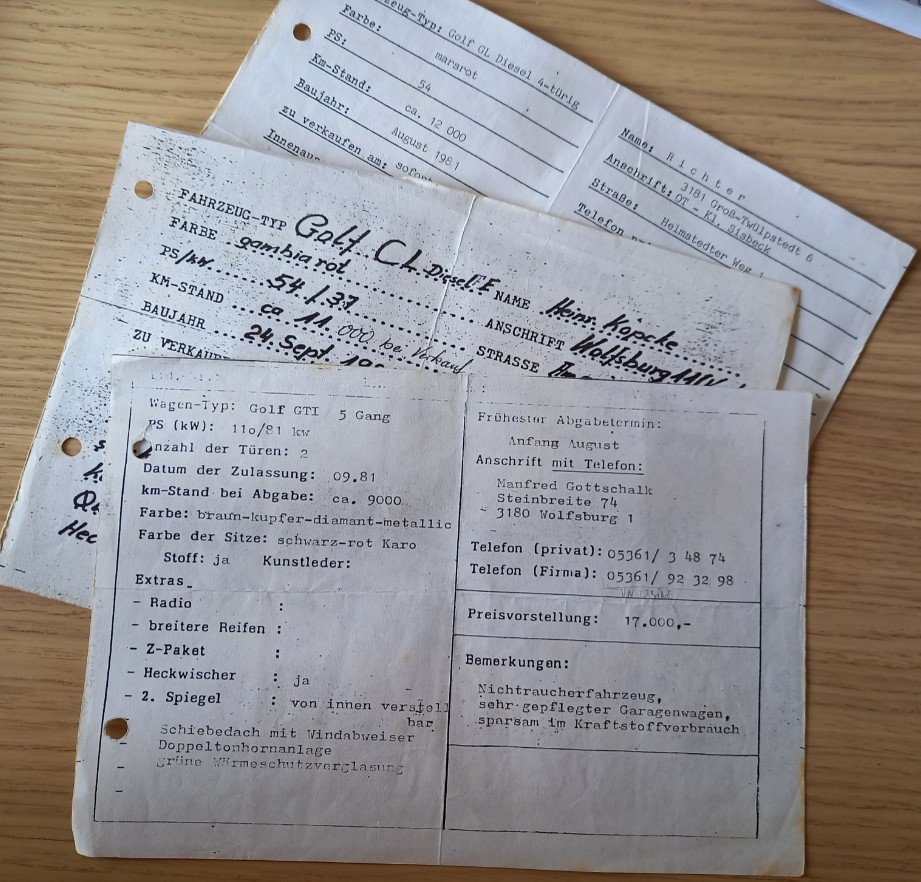 zeug-Typ: Golf GL Diesel 4-türig
Farbe: marsrot
PS: 54
Km-Stand: ca. 12 000
Baujahr: August 1981
zu verkaufen am: sofort
Innenaus
Name: R i c h t e r
Anschrift: 3181 Groß-Twülpstedt 6
OT - Kl. Sisbeck
Straße: Helmstedter Weg 1
Telefon
FAHRZEUG-TYP Golf CL Diesel E
FARBE gambiarot
PS/kW 54/37
KM-STAND ca 11.000 bei Verkauf
BAUJAHR 24. Sept. 19
ZU VERKAUFE
NAME Heinr. Köpcke
ANSCHRIFT Wolfsburg 11
STRASSE
Hec
Wagen-Typ: Golf GTI 5 Gang
PS (kW): 11o/81 kw
Anzahl der Türen: 2
Datum der Zulassung: 09.81
km-Stand bei Abgabe: ca. 9000
Farbe: braun-kupfer-diamant-metallic
Farbe der Sitze: schwarz-rot Karo
Stoff: ja Kunstleder:
Extras
- Radio :
- breitere Reifen :
- Z-Paket :
- Heckwischer : ja
- 2. Spiegel : von innen verstell
bar
Schiebedach mit Windabweiser
- Doppeltonhornanlage
- grüne Wärmeschutzverglasung
-
Frühester Abgabetermin:
Anfang August
Anschrift mit Telefon:
Manfred Gottschalk
Steinbreite 74
- 3180 Wolfsburg 1
Telefon (privat): 05361/ 3 48 74
Telefon (Firma): 05361/ 92 32 98
Preisvorstellung: 17.000,-
Bemerkungen:
Nichtraucherfahrzeug,
sehr gepflegter Garagenwagen,
sparsam im Kraftstoffverbrauch